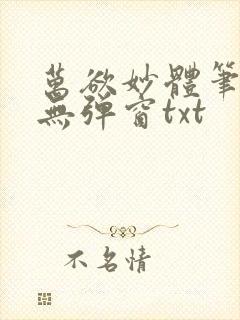 萬欲妙體筆
無彈窗txt
不名情